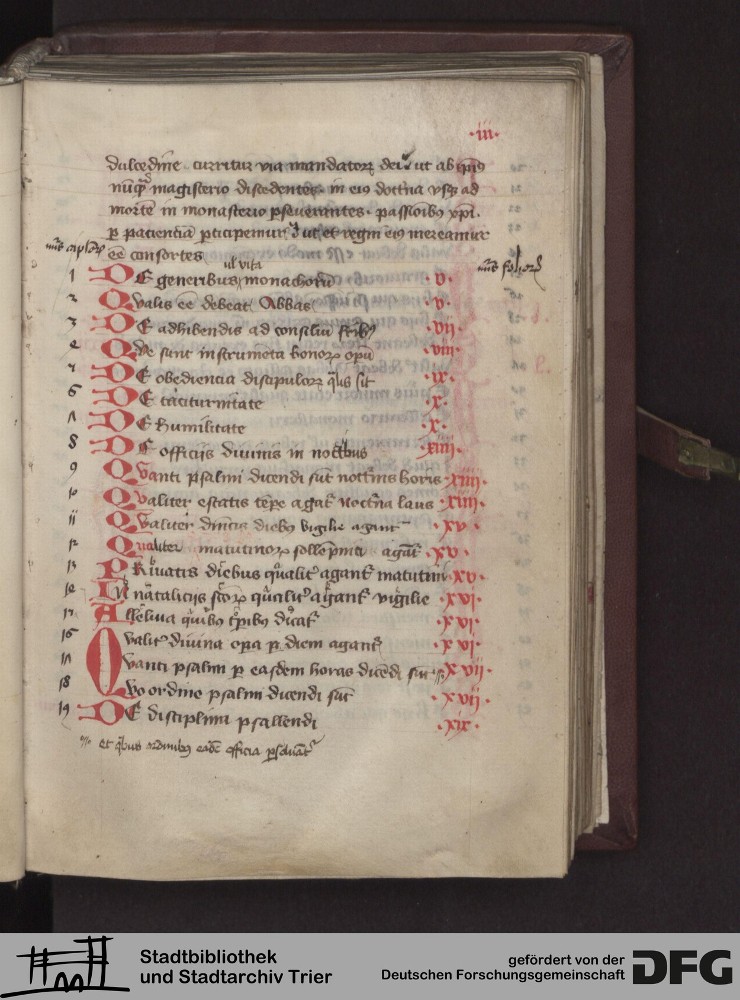 ·iii·
dulcedine curritur via mandatorꝝ dei ut ab ipiꝰ
nūqͣ magisterio discedentes in eiꝰ doctͥna vsqꝫ ad
mortē in monasterio ꝑseuerantes · passioībꝰ xp̄i ·
ꝑ patientiā ꝑticipemur ut et regni eiꝰ mereamur
ēē consortes
ul vita
1 DE generibus monachorū ·v·
2 Qvalis ēē debeat Abbas ·v·
3 DE adhibendis ad consiliū fr̄ibꝰ ·vii·
4 Qve sunt instrumēta bonorꝝ opū ·viii·
5 DE obediencia discipulorꝝ qͣlis sit ·ix·
6 DE taciturnitate ·x·
7 DE humilitate ·x·
8 DE officijs diuinis in noctibus ·xiiii·
9 Qvanti psalmi dicendi sūt nocttͥnis horis ·xiiii·
10 Qvaliter estatis tēpe agat᷑ noctͥna laus ·xiiii·
11 Qvaliter dn̄icis diebꝰ vigilie agant᷑ ·xv·
12 Qualiter matutinorꝝ sollēpnitͣ agāt᷑ ·xv·
13 PRiuatis diebus qͣlit᷑ agant᷑ matutini ·xv·
14 In natalicijs sc̄orꝝ qͣlit᷑ agant᷑ vigilie ·xvi·
15 Alleluia qͥbꝰ tp̄ibꝰ dicat᷑ ·xvi·
16 Qvalit᷑ diuina opa ꝑ diem agant᷑ ·xvi·
17 Qvanti psalmi ꝑ easdem horas dicēdi sūt ·xvii·
18 Qvo ordine psalmi dicendi sūt ·xvii·
19 DE disciplina psallendi ·xix·
et qͥbus ordinibꝰ eadē officia
Stadtbibliothek
und Stadtarchiv Trier
gefördert von der
Deutschen Forschungsgemeinschaft
DFG